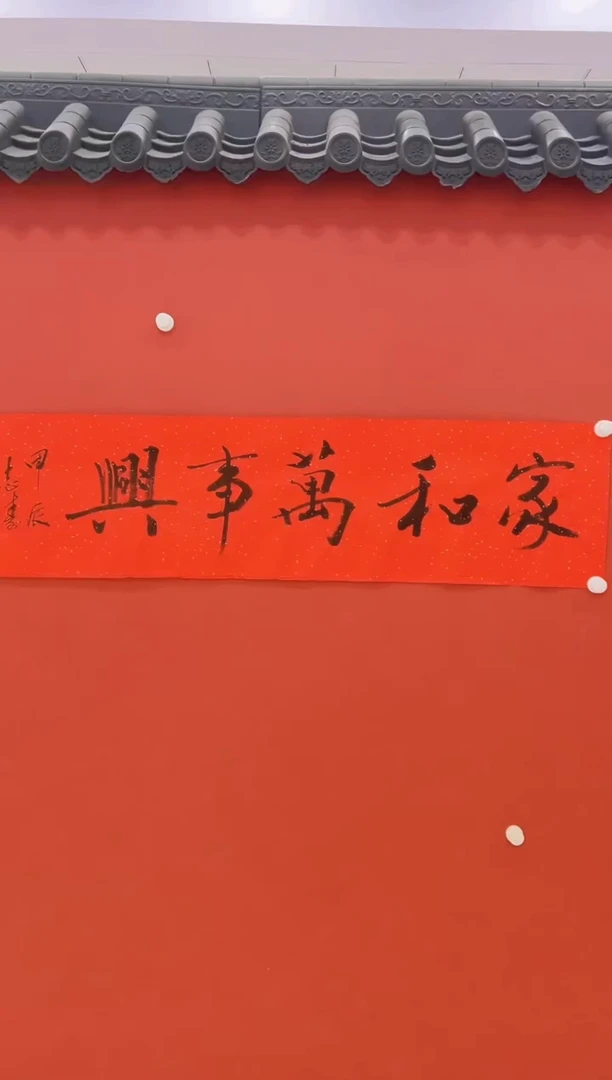 家和萬事興
甲辰